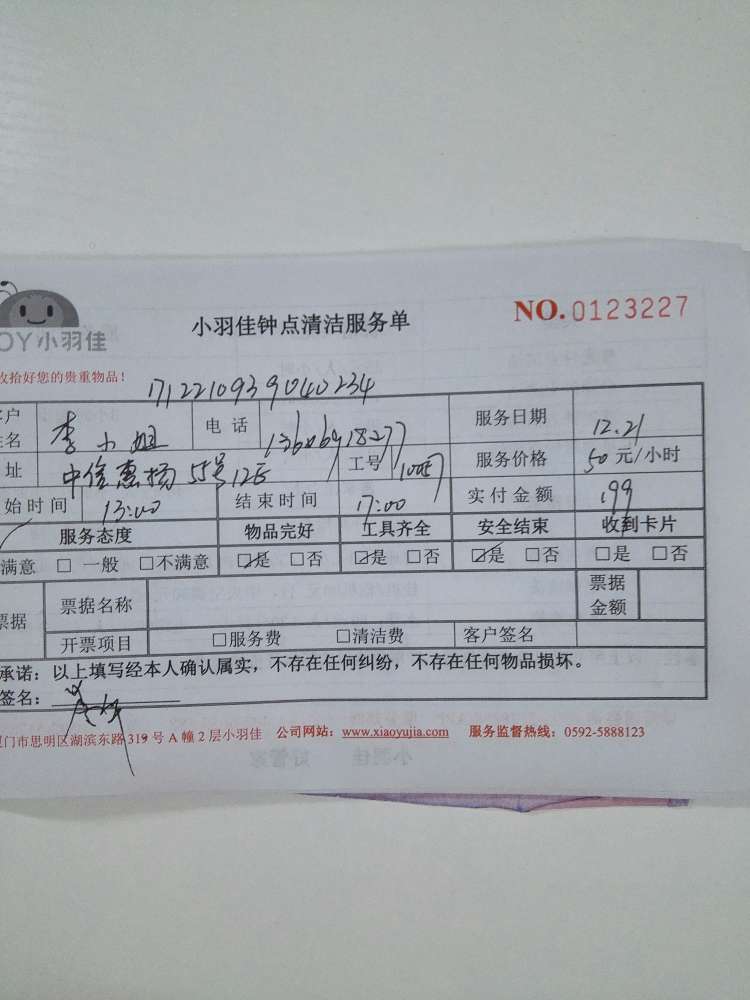 小羽佳钟点清洁服务单 NO.0123227
OY小羽佳
收拾好您的贵重物品！
1712210939040234
客户姓名 李小姐 电话 服务日期 12.21
址 55号 工号 服务价格 50元/小时
始时间 13:00 结束时间 17:00 实付金额 199
服务态度 物品完好 工具齐全 安全结束 收到卡片
满意 □ 一般 □不满意 ☑是 □否 ☑是 □否 ☑是 □否 □是 □否
票据 票据名称 票据金额
开票项目 □服务费 □清洁费 客户签名
承诺：以上填写经本人确认属实，不存在任何纠纷，不存在任何物品损坏。
签名：
厦门市思明区湖滨东路319号A幢2层小羽佳 公司网站：www.xiaoyujia.com 服务监督热线：0592-5888123